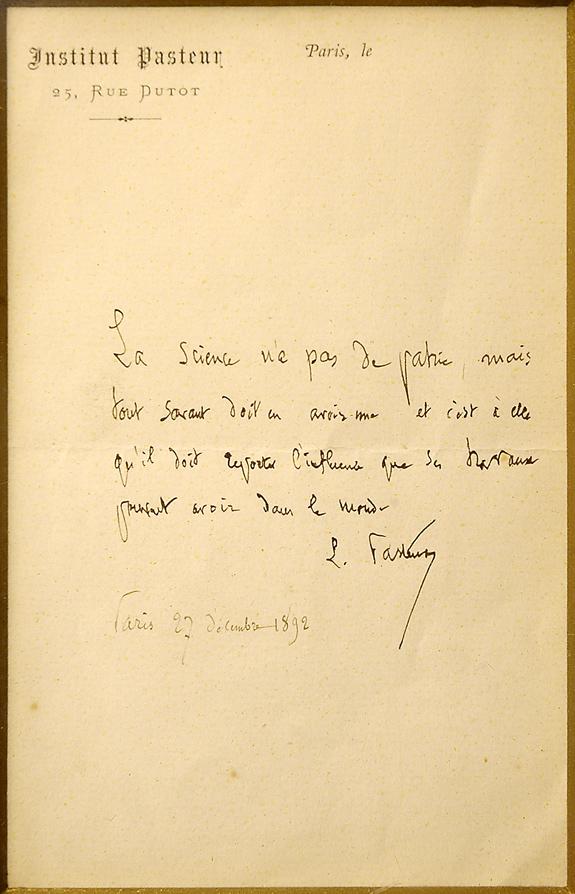 Institut Pasteur
25, Rue Dutot
Paris, le
La Science n'a pas de patrie, mais
tout Savant doit en avoir une et c'est à elle
qu'il doit reporter l'influence que ses travaux
peuvent avoir dans le monde
L. Pasteur
Paris 27 décembre 1892